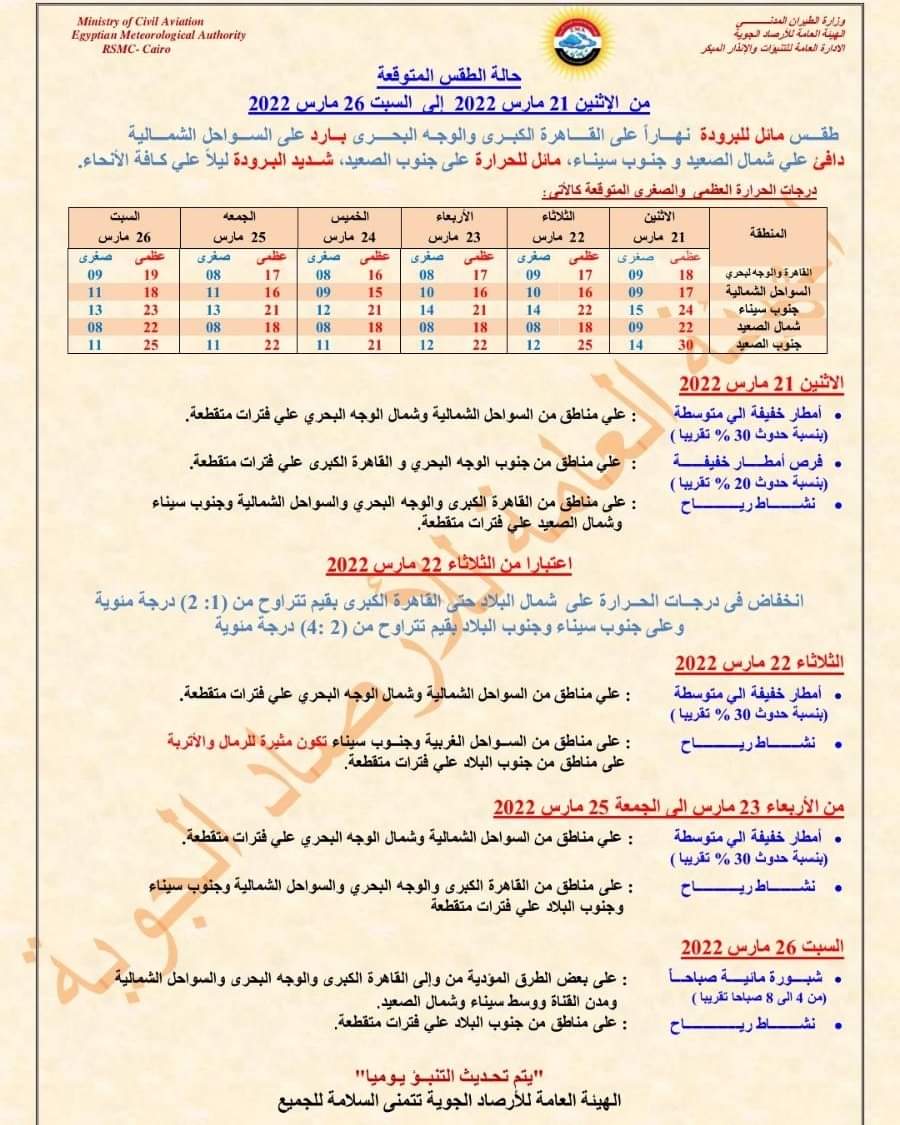 Ministry of Civil Aviation
Egyptian Meteorological Authority
RSMC- Cairo
وزارة الطيران المدنـــــي
الهيئة العامة للأرصاد الجوية
الادارة العامة للتنبؤات والإنذار المبكر
EMA
حالة الطقس المتوقعة
من الإثنين 21 مارس 2022 إلى السبت 26 مارس 2022
طقــس مائل للبرودة نهـاراً على القــاهرة الكبرى والوجه البحــرى بــارد على الســواحل الشمــالية
دافئ علي شمال الصعيد و جنـوب سيناء، مائل للحرارة على جنوب الصعيد، شـديد البرودة ليلاً علي كـافة الأنحاء.
درجات الحرارة العظمى والصغرى المتوقعة كالأتى:
المنطقة الاثنين 21 مارس الثلاثاء 22 مارس الأربعاء 23 مارس الخميس 24 مارس الجمعه 25 مارس السبت 26 مارس
عظمى صغرى عظمى صغرى عظمى صغرى عظمى صغرى عظمى صغرى عظمى صغرى
القاهرة والوجه لبحري 18 09 17 09 17 08 16 08 17 08 19 09
السواحل الشمالية 17 09 16 10 16 10 15 09 16 11 18 11
جنوب سيناء 24 15 22 14 21 14 21 12 21 13 23 13
شمال الصعيد 22 09 18 08 18 08 18 08 18 08 22 08
جنوب الصعيد 30 14 25 12 22 12 21 11 22 11 25 11
الاثنين 21 مارس 2022
• أمطار خفيفة الي متوسطة : علي مناطق من السواحل الشمالية وشمال الوجه البحري علي فترات متقطعة.
(بنسبة حدوث 30 % تقريبا )
• فرص أمطــــار خفيفــــــة : علي مناطق من جنوب الوجه البحري و القاهرة الكبرى علي فترات متقطعة.
(بنسبة حدوث 20 % تقريبا )
• نشـــــاط ريـــــــــــاح : على مناطق من القاهرة الكبرى والوجه البحري والسواحل الشمالية وجنوب سيناء
وشمال الصعيد علي فترات متقطعة.
اعتبارا من الثلاثاء 22 مارس 2022
انخفاض فى درجـات الحـرارة على شمال البلاد حتى القاهرة الكبرى بقيم تتراوح من (1: 2) درجة مئوية
وعلى جنوب سيناء وجنوب البلاد بقيم تتراوح من (2 :4) درجة مئوية
الثلاثاء 22 مارس 2022
• أمطار خفيفة الي متوسطة : علي مناطق من السواحل الشمالية وشمال الوجه البحري علي فترات متقطعة.
(بنسبة حدوث 30 % تقريبا )
• نشـــــاط ريـــــــــــاح : على مناطق من الســواحل الغربية وجنــوب سيناء تكون مثيرة للرمال والأتربة
على مناطق من جنوب البلاد علي فترات متقطعة.
من الأربعاء 23 مارس الى الجمعة 25 مارس 2022
• أمطار خفيفة الي متوسطة : علي مناطق من السواحل الشمالية وشمال الوجه البحري علي فترات متقطعة.
(بنسبة حدوث 30 % تقريبا )
• نشـــــاط ريـــــــــــاح : على مناطق من القاهرة الكبرى والوجه البحري والسواحل الشمالية وجنوب سيناء
وجنوب البلاد علي فترات متقطعة
السبت 26 مارس 2022
• شبــورة مائيـــة صباحـــاً : على بعض الطرق المؤدية من وإلى القاهرة الكبرى والوجه البحرى والسواحل الشمالية
(من 4 الى 8 صباحا تقريبا ) ومدن القناة ووسط سيناء وشمال الصعيد.
• نشـــــاط ريـــــــــــاح : على مناطق من جنوب البلاد علي فترات متقطعة.
"يتم تحـديث التنبـؤ يـوميا"
الهيئة العامة للأرصاد الجوية تتمنى السلامة للجميع
الهيئة العامة للأرصاد الجوية